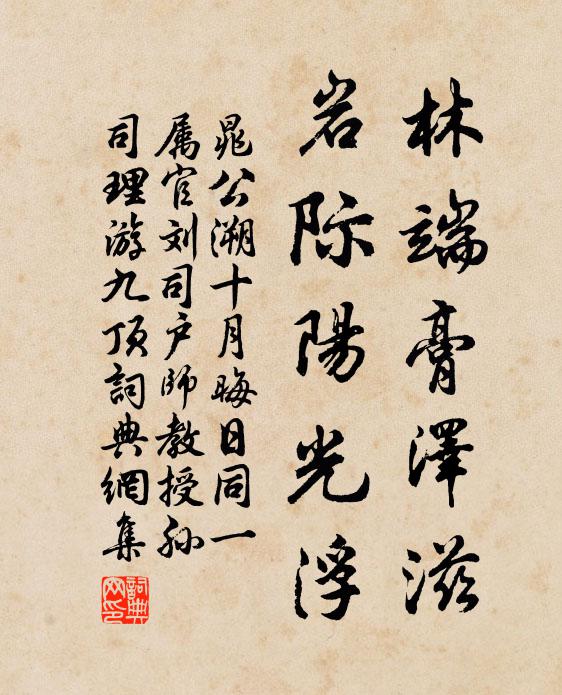 林端膏澤滋
岩际陽光浮
晁公溯十月晦日同一
属官刘司户師教授孙
司理游九顶詞典網集
詞典網印